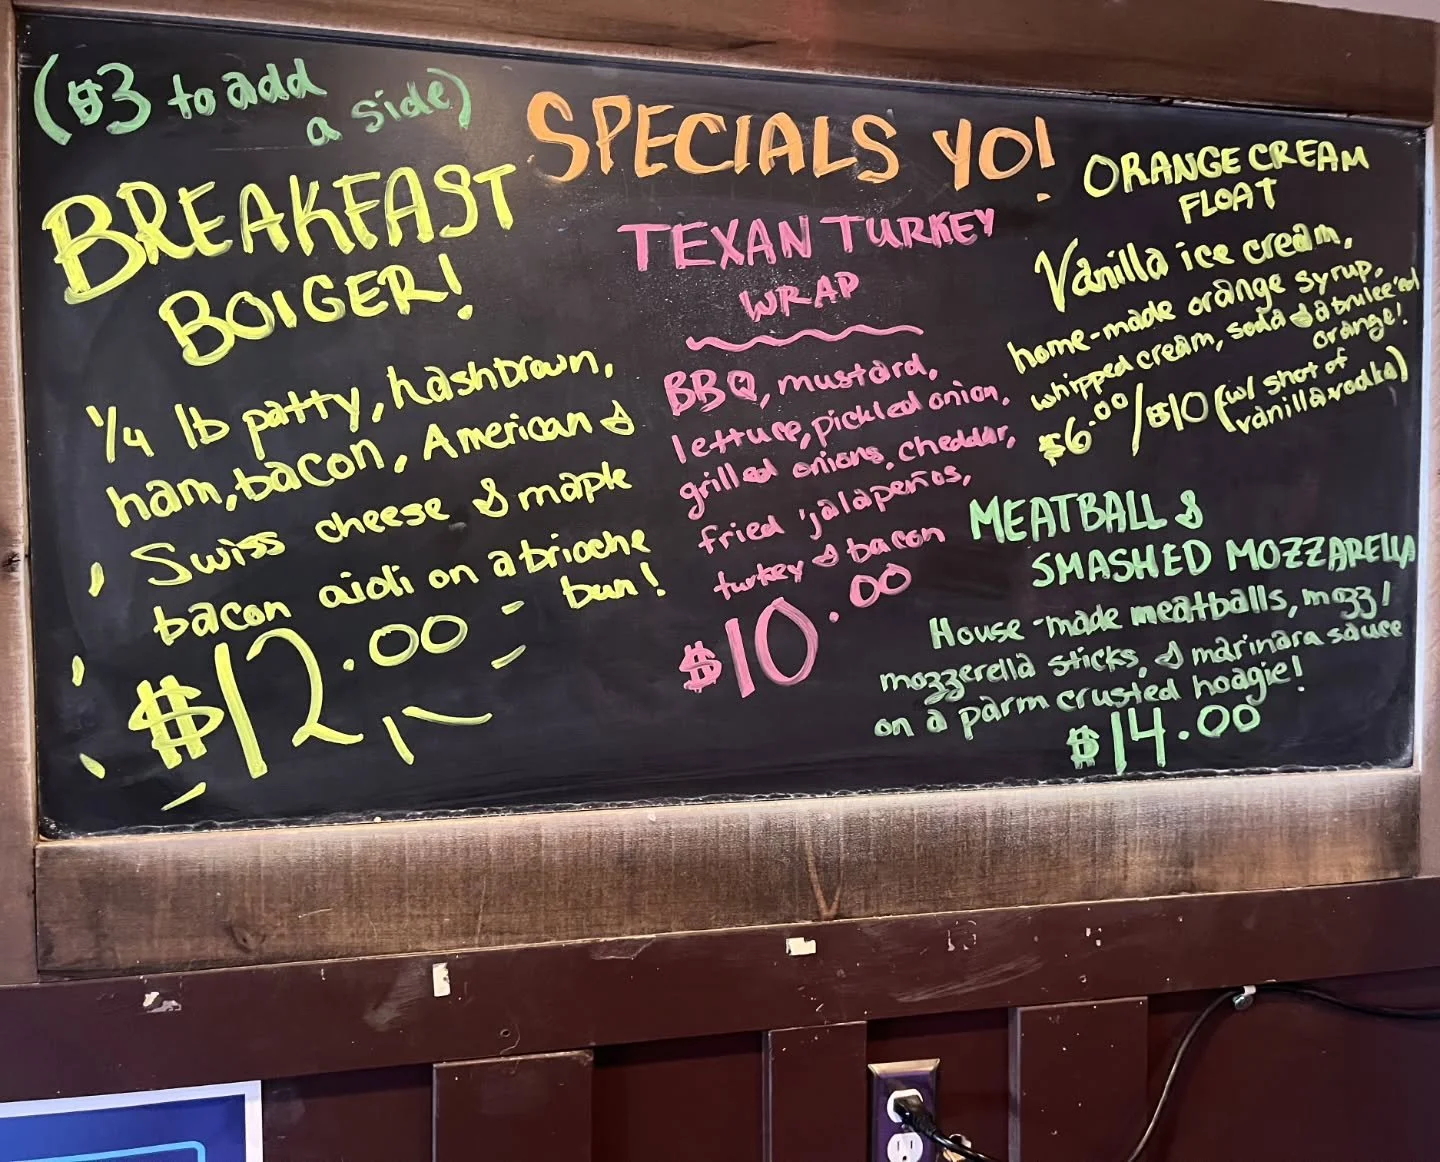 ($3 to add
a side)
SPECIALS YO!
BREAKFAST
BOIGER!
1/4 lb patty, hashbrown,
ham, bacon, American &
Swiss cheese & maple
bacon aioli on a brioche
bun!
$12.00
TEXAN TURKEY
WRAP
BBQ, mustard,
lettuce, pickled onion,
grilled onions, cheddar,
fried jalapeños,
turkey & bacon
$10.00
ORANGE CREAM
FLOAT
Vanilla ice cream,
home-made orange syrup,
whipped cream, soda & a brulee'ed
orange!
$6.00/$10 (w/ shot of
vanilla vodka)
MEATBALL &
SMASHED MOZZARELLA
House-made meatballs, mozz/
mozzerella sticks, & marinara sauce
on a parm crusted hoagie!
$14.00